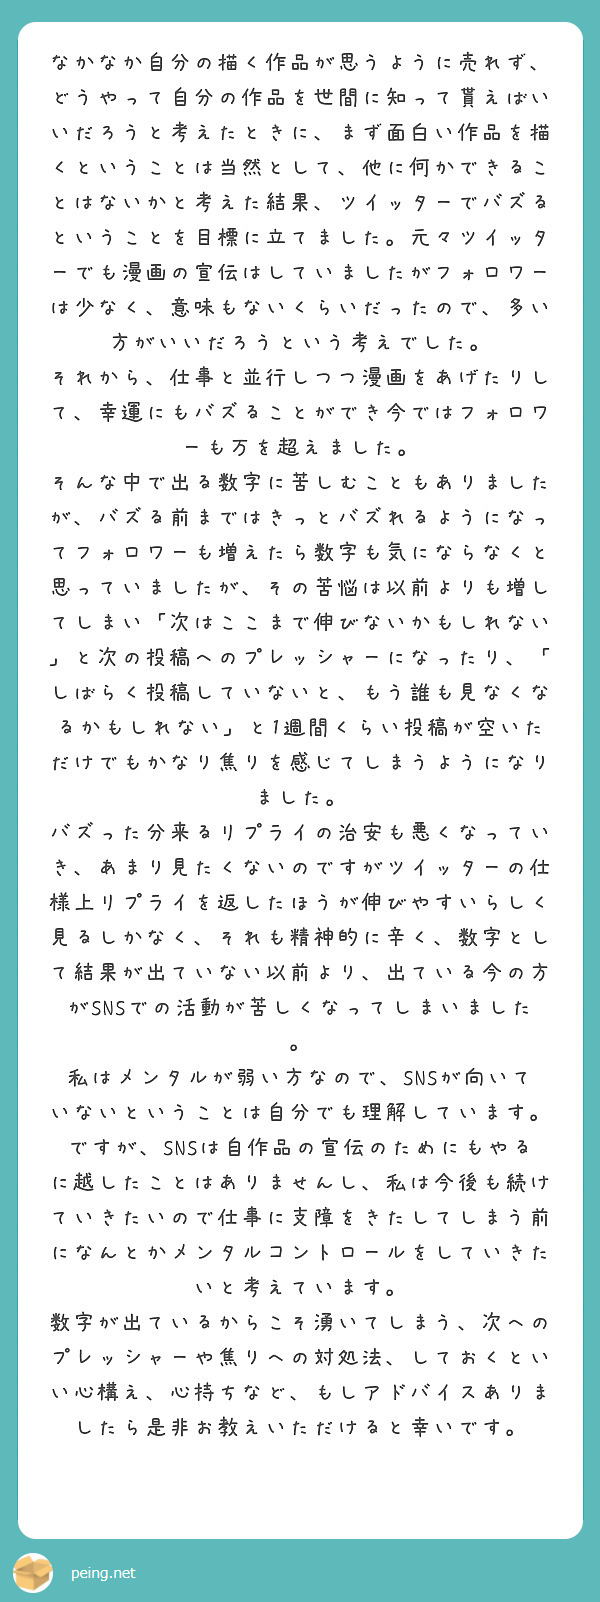 なかなか自分の描く作品が思うように売れず、
どうやって自分の作品を世間に知って貰えばい
いだろうと考えたときに、まず面白い作品を描
くということは当然として、他に何かできるこ
とはないかと考えた結果、ツイッターでバズる
ということを目標に立てました。元々ツイッタ
ーでも漫画の宣伝はしていましたがフォロワー
は少なく、意味もないくらいだったので、多い
方がいいだろうという考えでした。
それから、仕事と並行しつつ漫画をあげたりし
て、幸運にもバズることができ今ではフォロワ
ーも万を超えました。
そんな中で出る数字に苦しむこともありました
が、バズる前まではきっとバズれるようになっ
てフォロワーも増えたら数字も気にならなくと
思っていましたが、その苦悩は以前よりも増し
てしまい「次はここまで伸びないかもしれない
」と次の投稿へのプレッシャーになったり、「
しばらく投稿していないと、もう誰も見なくな
るかもしれない」と1週間くらい投稿が空いた
だけでもかなり焦りを感じてしまうようになり
ました。
バズった分来るリプライの治安も悪くなってい
き、あまり見たくないのですがツイッターの仕
様上リプライを返したほうが伸びやすいらしく
見るしかなく、それも精神的に辛く、数字とし
て結果が出ていない以前より、出ている今の方
がSNSでの活動が苦しくなってしまいました
。
私はメンタルが弱い方なので、SNSが向いて
いないということは自分でも理解しています。
ですが、SNSは自作品の宣伝のためにもやる
に越したことはありませんし、私は今後も続け
ていきたいので仕事に支障をきたしてしまう前
になんとかメンタルコントロールをしていきた
いと考えています。
数字が出ているからこそ湧いてしまう、次への
プレッシャーや焦りへの対処法、しておくとい
い心構え、心持ちなど、もしアドバイスありま
したら是非お教えいただけると幸いです。
peing.net